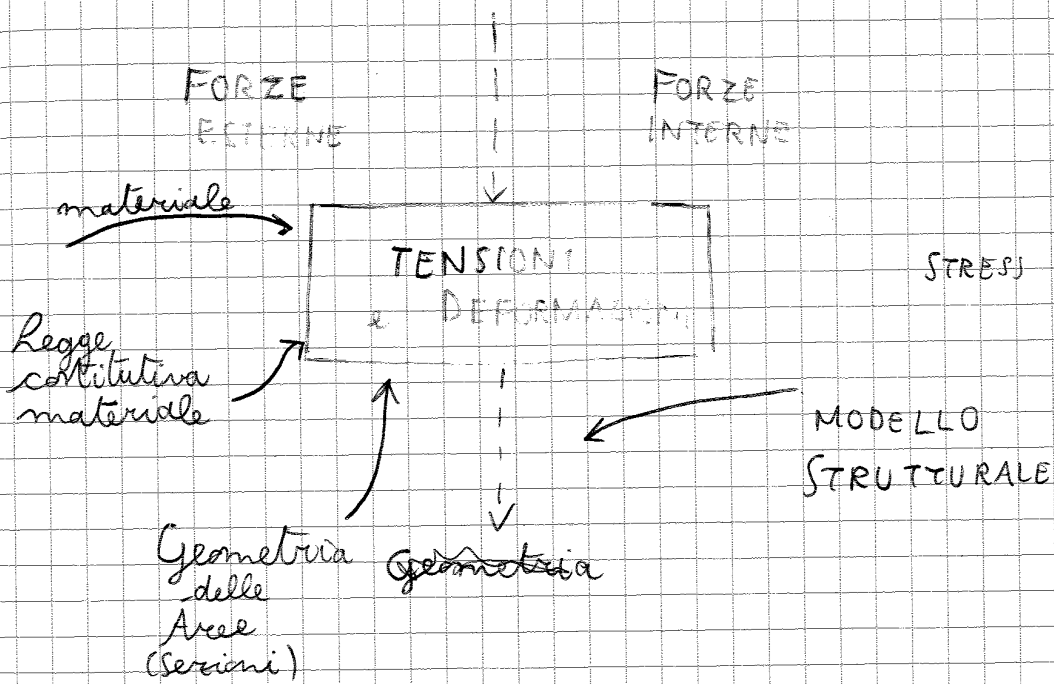 FORZE
ESTERNE
FORZE
INTERNE
materiale
TENSIONI
e DEFORMAZIONI
STRESS
Legge
costitutiva
materiale
MODELLO
STRUTTURALE
Geometria
delle
Aree
(Sezioni)
Geometria